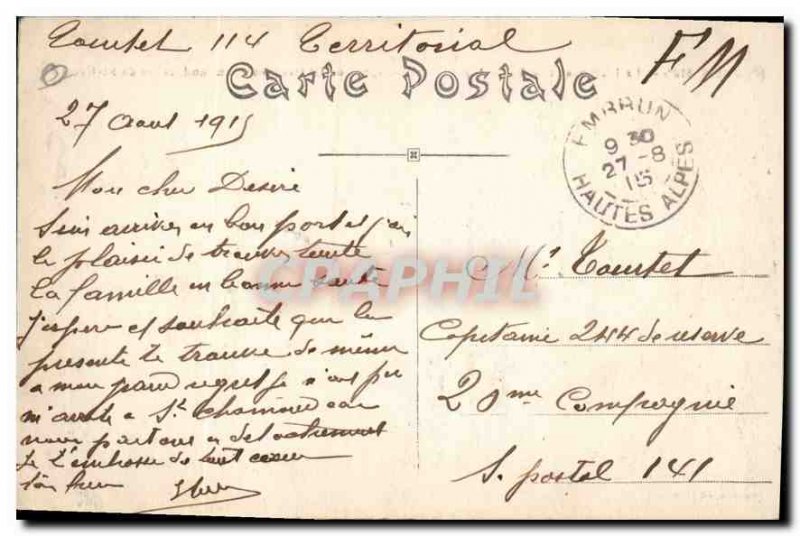 Toutset 114 Territorial
FM
Carte Postale
27 Aout 1915
EMBRUN
9 30
27-8
15
HAUTES ALPES
Mon cher Desiré
Suis arriver en bon port et j'ai
le plaisir de trouver toute
la famille en bonne santé
j'espere et souhaite que la
presente te trouve de même
a mon grand regret je n'ai pu
m'arreté a St Chamond car
nous partons en detachement
Je t'embrasse de tout coeur
Ton
Mr Toutset
Capitaine 244 de reserve
20me Compagnie
S. postal 141
CPAPHIL